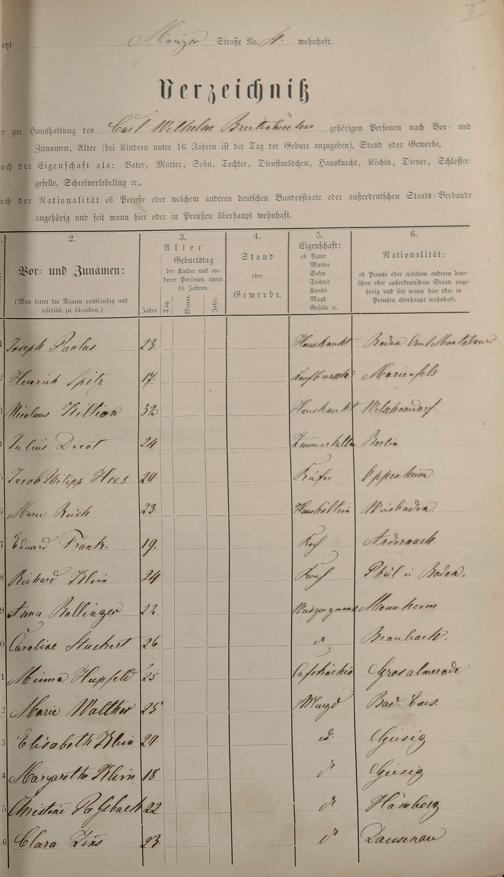 Straße No. 4. wohnhaft.
Verzeichniß
zur Haushaltung des Carl Wilhelm gehörigen Personen nach Vor- und
Zunamen, Alter (bei Kindern unter 16 Jahren ist der Tag der Geburt anzugeben), Stand oder Gewerbe,
nach der Eigenschaft als: Vater, Mutter, Sohn, Tochter, Dienstmädchen, Hausknecht, Köchin, Diener, Schlosser-
geselle, Schreinerlehrling ꝛc.,
nach der Nationalität ob Preuße oder welchem anderen deutschen Bundesstaate oder außerdeutschen Staats-Verbande
angehörig und seit wann hier oder in Preußen überhaupt wohnhaft.
2. 3. 4. 5. 6.
Vor- und Zunamen:
(Man bittet die Namen vollständig und
leserlich zu schreiben.)
Alter
Geburtstag
der Kinder und an-
derer Personen unter
16 Jahren.
Jahre Tag. Monat. Jahr.
Stand
oder
Gewerbe.
Eigenschaft:
ob Vater
Mutter
Sohn
Tochter
Knecht
Magd
Geselle ꝛc.
Nationalität:
ob Preuße oder welchem anderen deut-
schen oder außerdeutschen Staate ange-
hörig und seit wann hier oder in
Preußen überhaupt wohnhaft.
Joseph Paulus 23. Hausknecht Baden
Heinrich Spitz 17. Marienfels
Nicolaus Killian 32. Hausknecht
Julius 24 Berlin
Jacob Philipp Hees 20 Küfer Oppenheim
Marie Reich 23 Wiesbaden
Eduard Frank. 19. Koch Andernach
Richard Klein 24 Koch Bühl in Baden.
Anna Bollinger 22 Mannheim
Caroline 26 d Braubach.
Minna Hupfeld 25 Grosalmerode
Marie Walther 25 Magd Bad. Ems.
Elisabeth Klein 20 d. Geisig
Margaretha Klein 18 d Geisig
Christine 22 d Hamburg
Clara Zins 23 d Dausenau